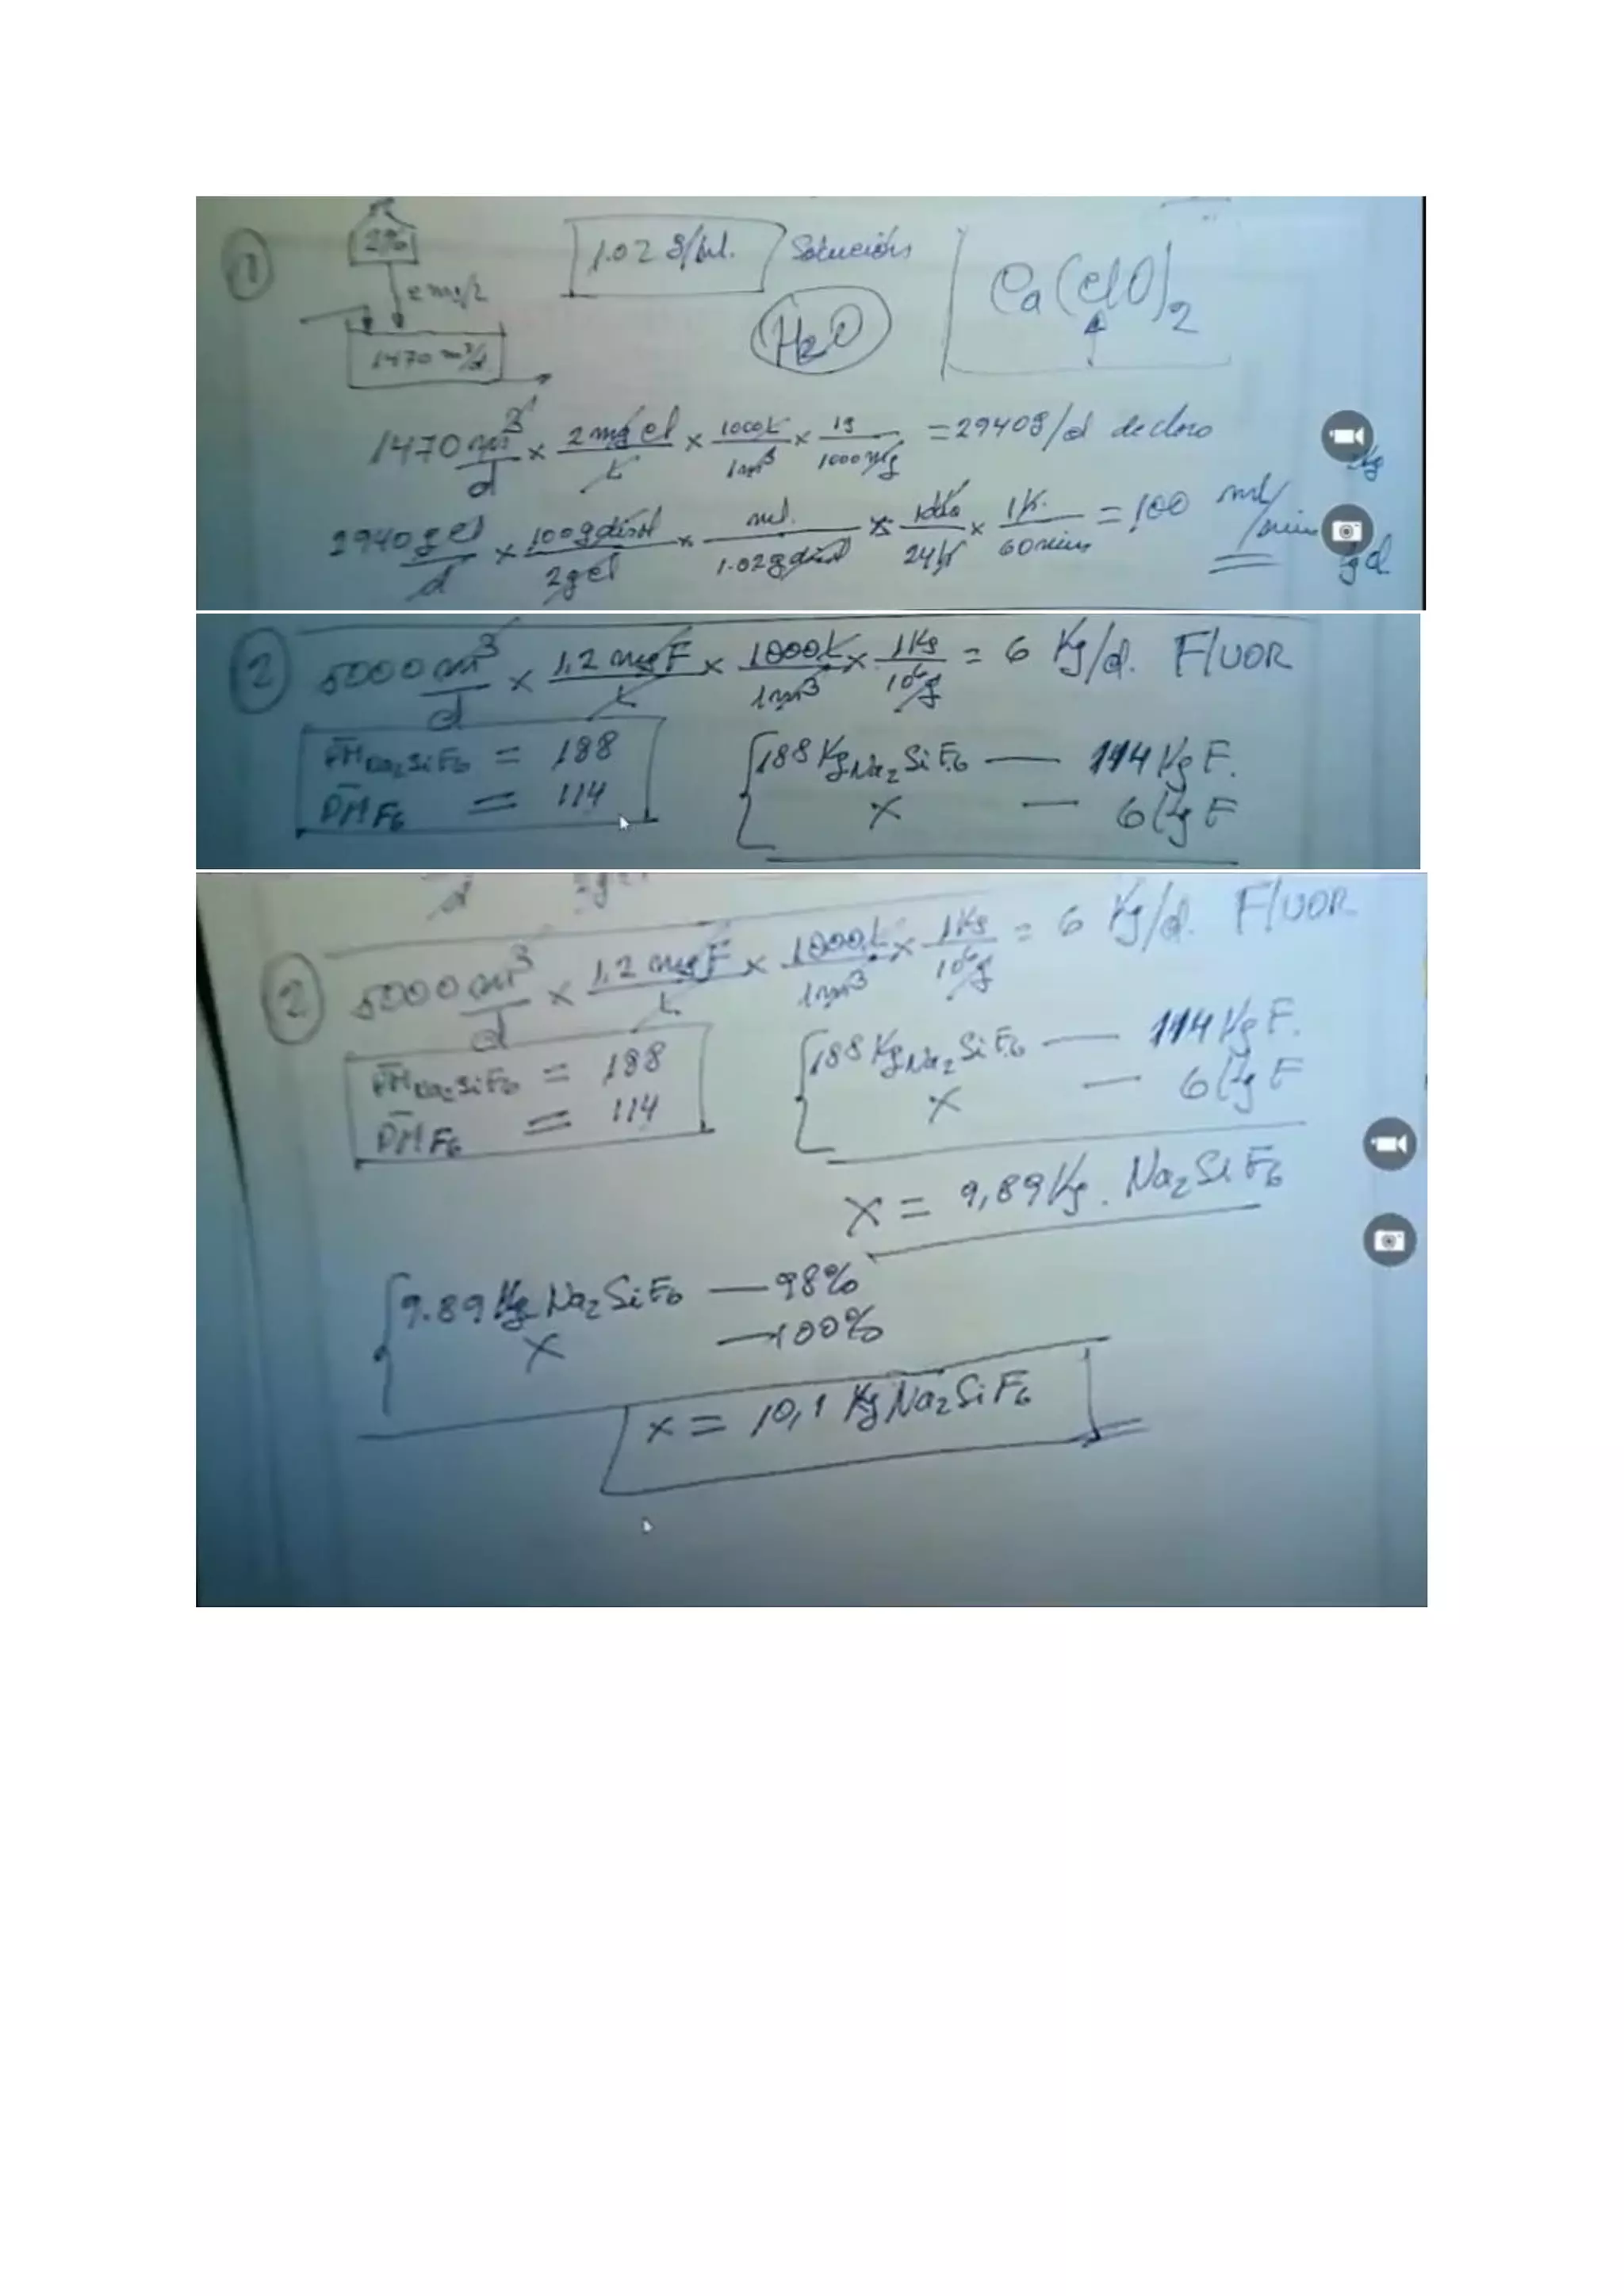 1
2%
1.02 g/ml. Solución
2 mg/L
H2O
Ca(ClO)2
1470 m³/d
1470 m³/d × 2 mg cl/L × 1000L/1m³ × 1g/1000mg = 2940g/d de cloro
Kg
2940 g cl/d × 100 g disol/2 g cl × ml./1.02 g disol × 1día/24h × 1h./60 min = 100 ml/min
gd
2 5000 m³/d × 1,2 mg F/L × 1000L/1m³ × 1Kg/10⁶g = 6 Kg/d. FLUOR
PM Na2SiF6 = 188
PM F6 = 114
188 Kg Na2SiF6 — 114 Kg F.
X — 6 Kg F
2 5000 m³/d × 1,2 mg F/L × 1000L/1m³ × 1Kg/10⁶g = 6 Kg/d. FLUOR
PM Na2SiF6 = 188
PM F6 = 114
188 Kg Na2SiF6 — 114 Kg F.
X — 6 Kg F
X = 9,89 Kg. Na2SiF6
9.89 Kg Na2SiF6 — 98%
X — 100%
X = 10,1 Kg Na2SiF6